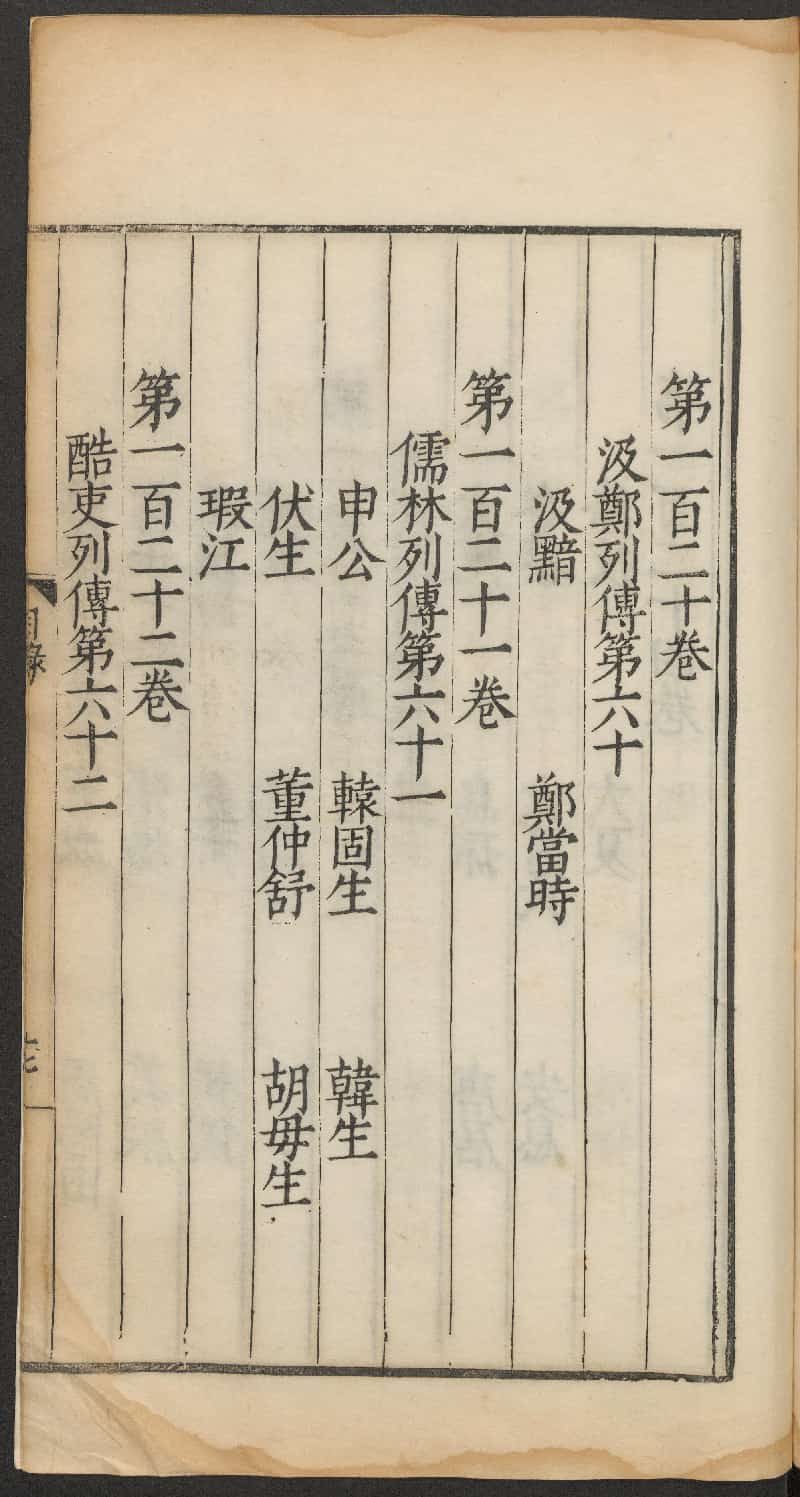 第一百二十卷
汲鄭列傳第六十
汲黯 鄭當時
第一百二十一卷
儒林列傳第六十一
申公 轅固生 韓生
伏生 董仲舒 胡毋生
瑕江
第一百二十二卷
酷吏列傳第六十二
目錄